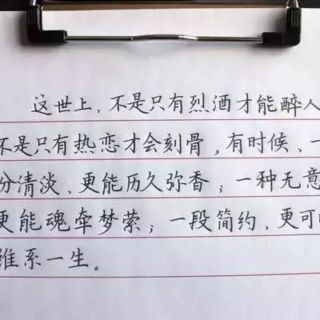 这世上，不是只有烈酒才能醉人
不是只有热恋才会刻骨，有时候、一
分清淡、更能历久弥香；一种无意
更能魂牵梦萦；一段简约，更可
维系一生。